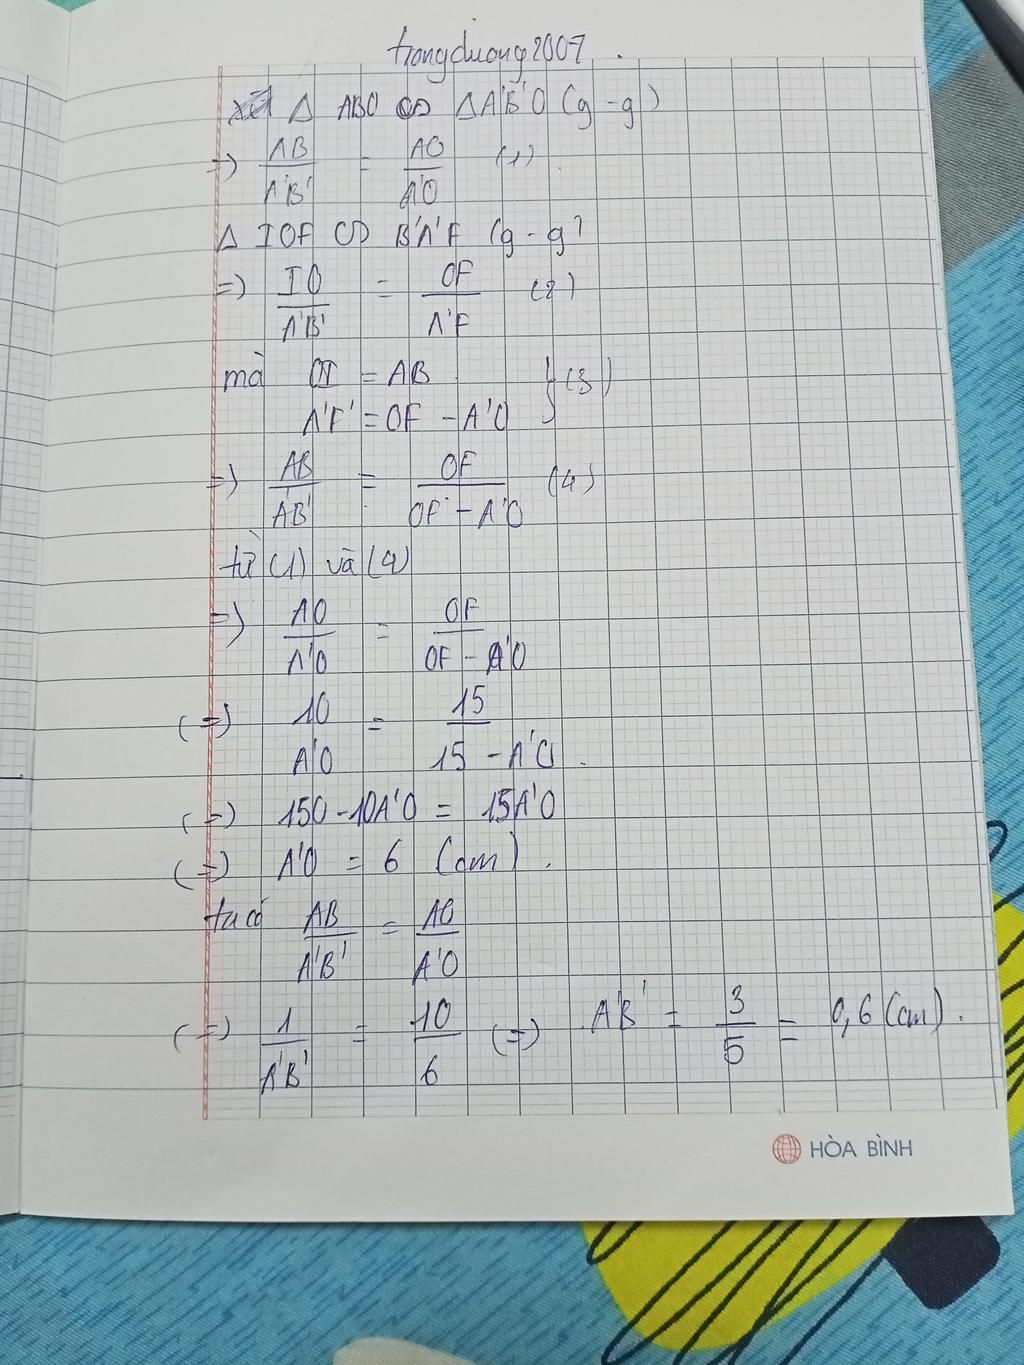 trongduong2007.
Δ ABO ∽ ΔA'B'O (g-g)
=> AB/A'B' = AO/A'O (1)
Δ IOF ∽ B'A'F (g-g)
=> IO/A'B' = OF/A'F (2)
mà OI = AB
A'F' = OF - A'O } (3)
=> AB/A'B' = OF/OF - A'O (4)
từ (1) và (4)
=> AO/A'O = OF/OF - A'O
(=) 10/A'O = 15/15 - A'O.
(=) 150 - 10A'O = 15A'O
(=) A'O = 6 (cm).
ta có AB/A'B' = AO/A'O
(=) 1/A'B' = 10/6 (=) A'B' = 3/5 = 0,6 (cm).
HÒA BÌNH